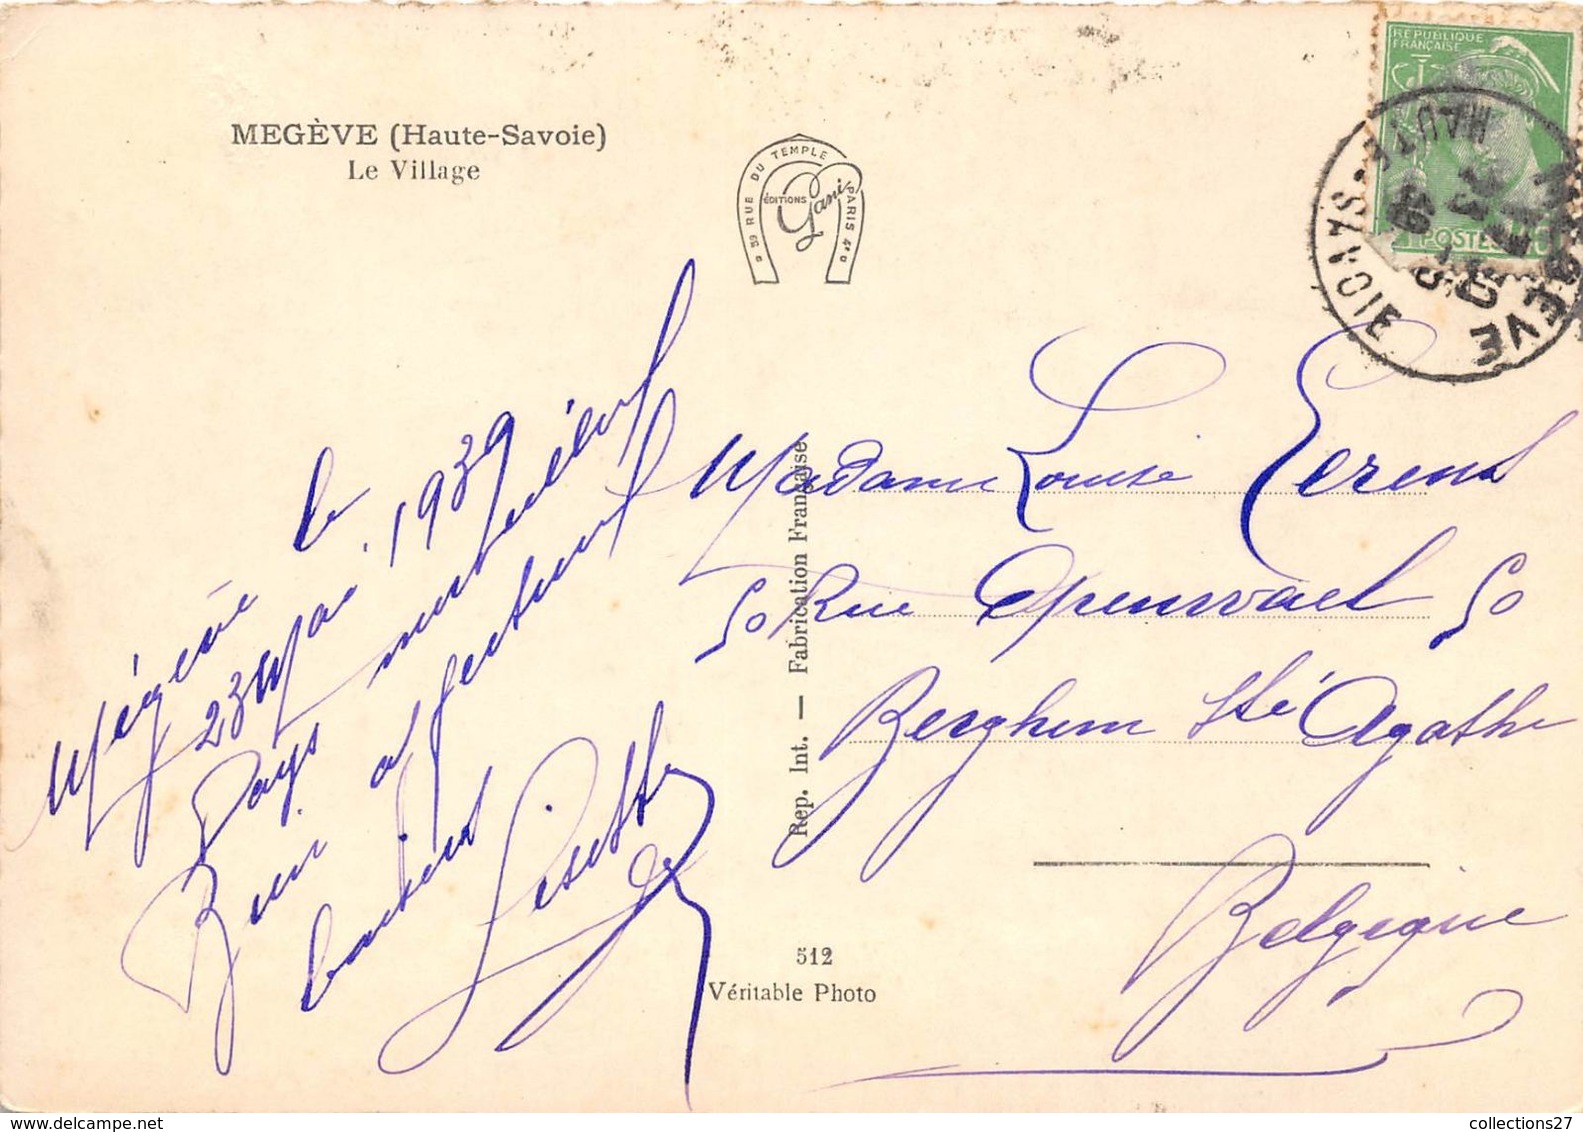 MEGÈVE (Haute-Savoie)
Le Village
59 RUE DU TEMPLE PARIS 4e
ÉDITIONS Gani
RÉPUBLIQUE
FRANÇAISE
POSTES
MEGÈVE
HAUTE-SAVOIE
Mégève le
23 Mai 1939
Pays merveilleux
Bien affectueux
baisers
Lisette
Madame Louise
50 Rue 50
Berghem Sté Agathe
Belgique
Rep. Int. — Fabrication Française
512
Véritable Photo
collections27